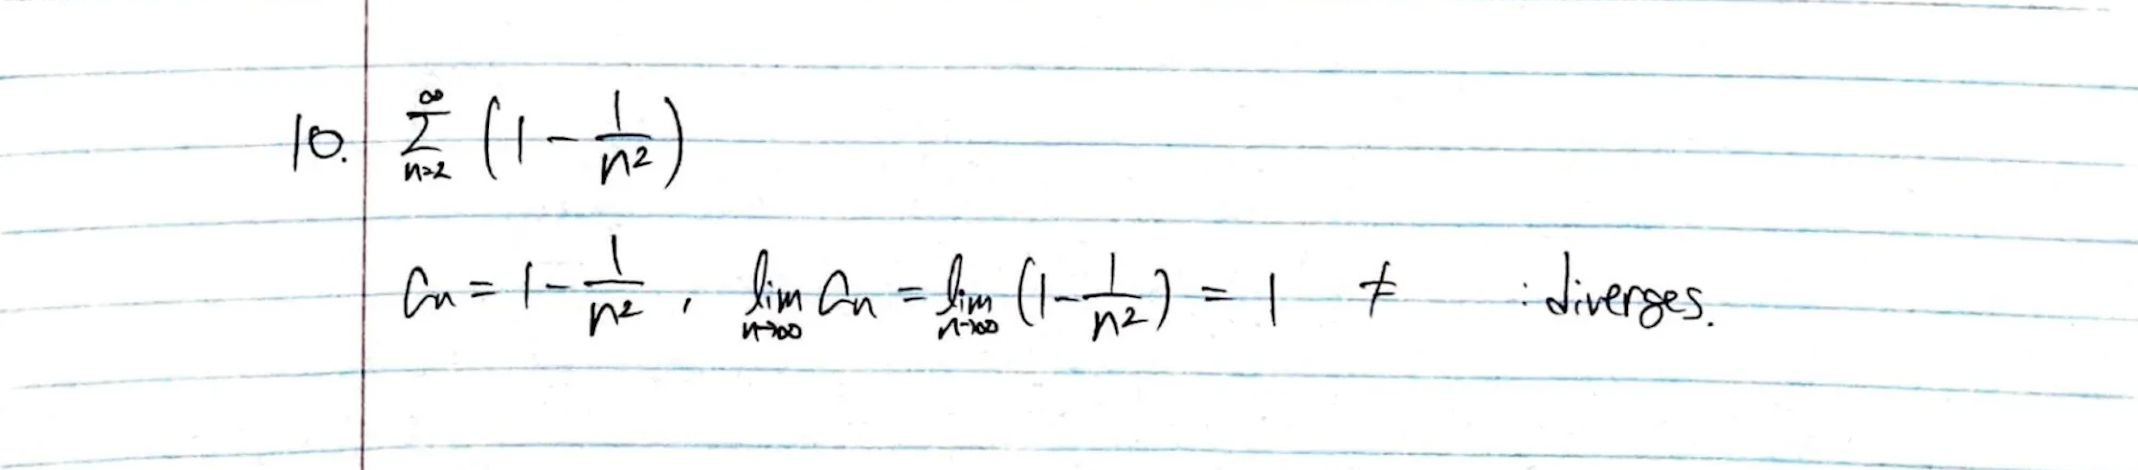 10. ∞ Σ n=2 (1 - 1/n²)
an = 1 - 1/n², lim n→∞ an = lim n→∞ (1 - 1/n²) = 1 ≠ : diverges.